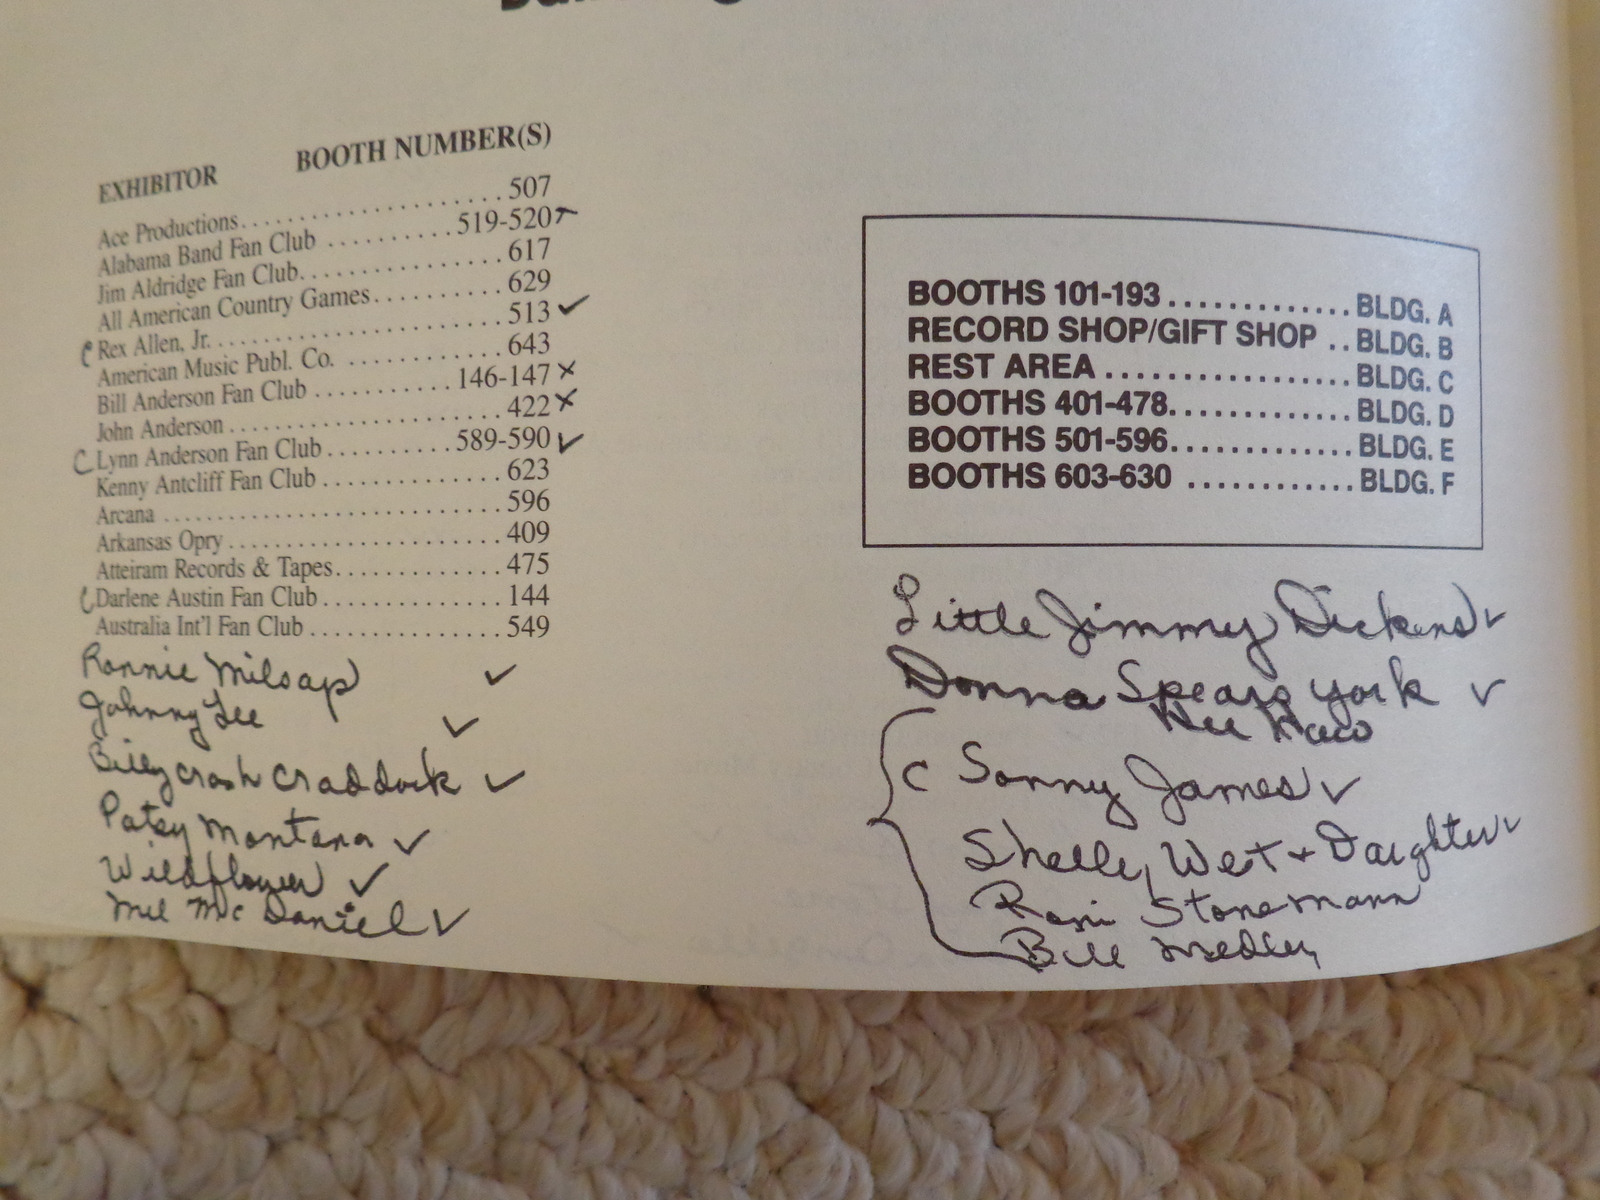 EXHIBITOR BOOTH NUMBER(S)
Ace Productions.....................507
Alabama Band Fan Club ..........519-520
Jim Aldridge Fan Club...............617
All American Country Games..........629
C Rex Allen, Jr. .....................513 ✓
American Music Publ. Co. ...........643
Bill Anderson Fan Club ..........146-147 x
John Anderson ......................422 x
C Lynn Anderson Fan Club ..........589-590 ✓
Kenny Antcliff Fan Club .............623
Arcana .............................596
Arkansas Opry ......................409
Atteiram Records & Tapes............475
C Darlene Austin Fan Club .............144
Australia Int'l Fan Club .............549
Ronnie Milsap ✓
Johnny Lee ✓
Billy crash craddock ✓
Patsy Montana ✓
Wildflower ✓
Mel McDaniel ✓
BOOTHS 101-193.............BLDG. A
RECORD SHOP/GIFT SHOP ..BLDG. B
REST AREA .................BLDG. C
BOOTHS 401-478.............BLDG. D
BOOTHS 501-596.............BLDG. E
BOOTHS 603-630 ............BLDG. F
Little Jimmy Dickens ✓
Donna Spears York ✓
Hee Haw
C Sonny James ✓
Shelly West + Daughter ✓
Roni Stonemann
Bill Medley